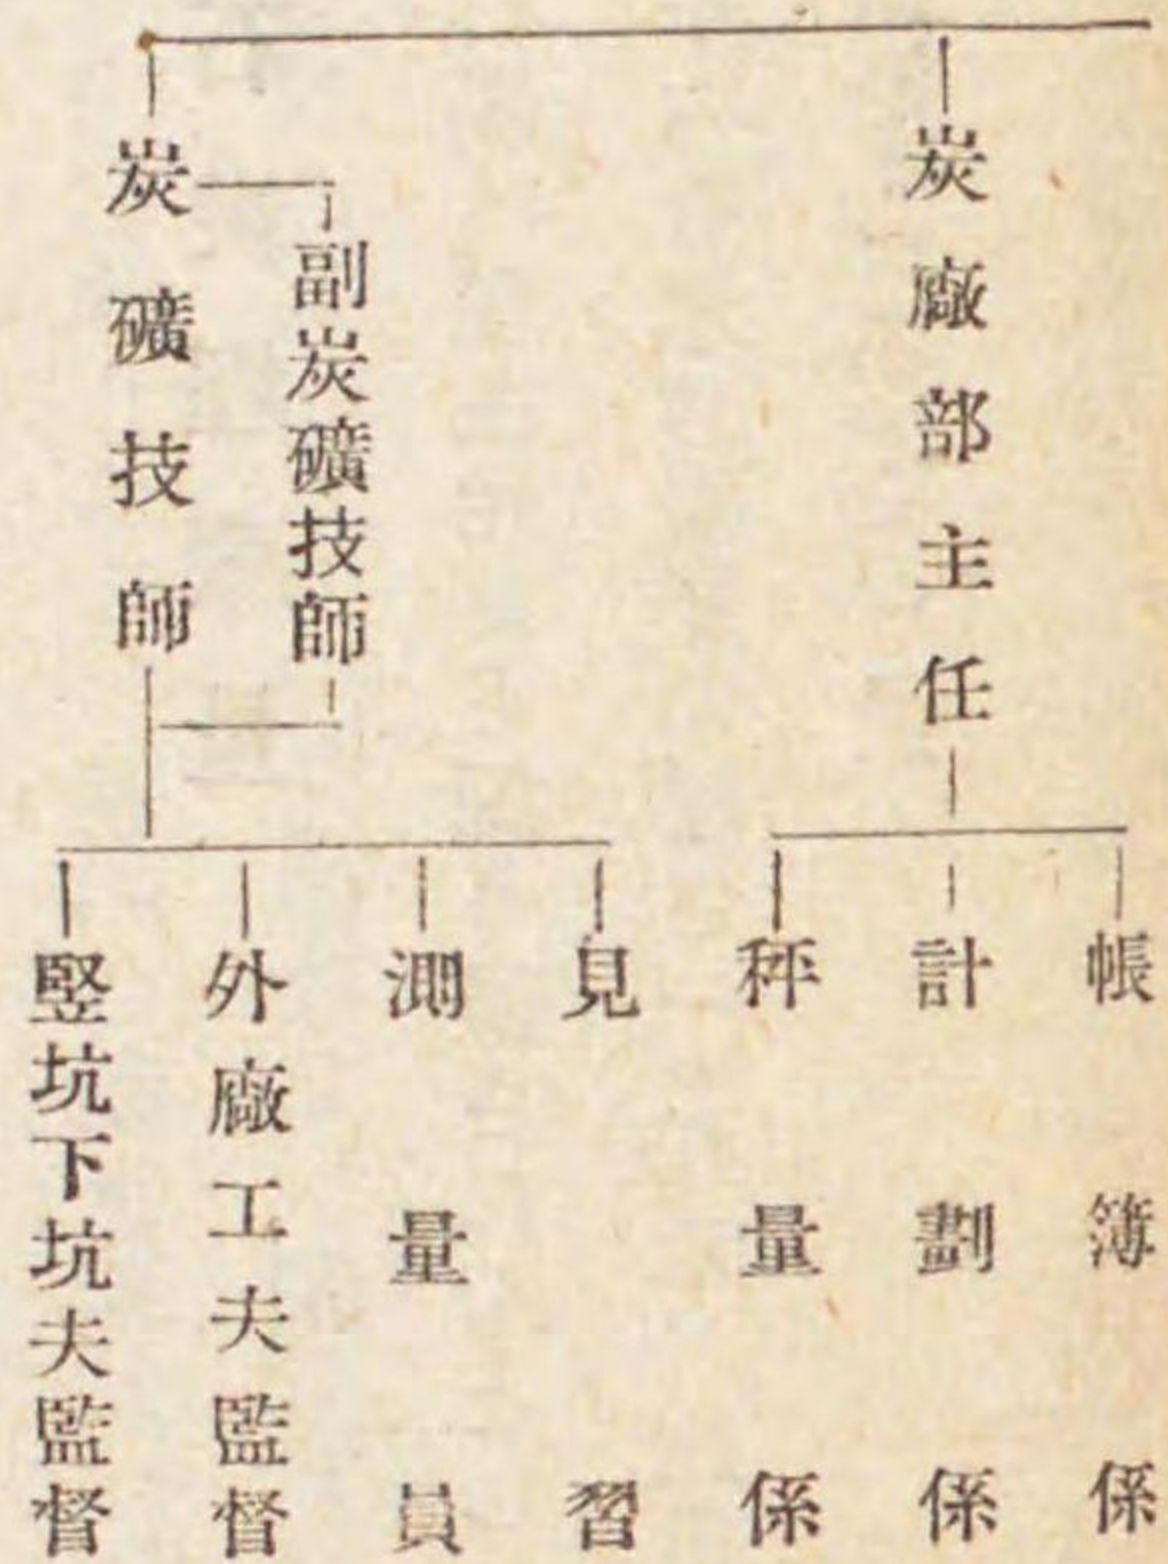 炭廠部主任
帳簿係
計劃係
秤量係
炭礦技師
副炭礦技師
見習
測量員
外廠工夫監督
竪坑下坑夫監督